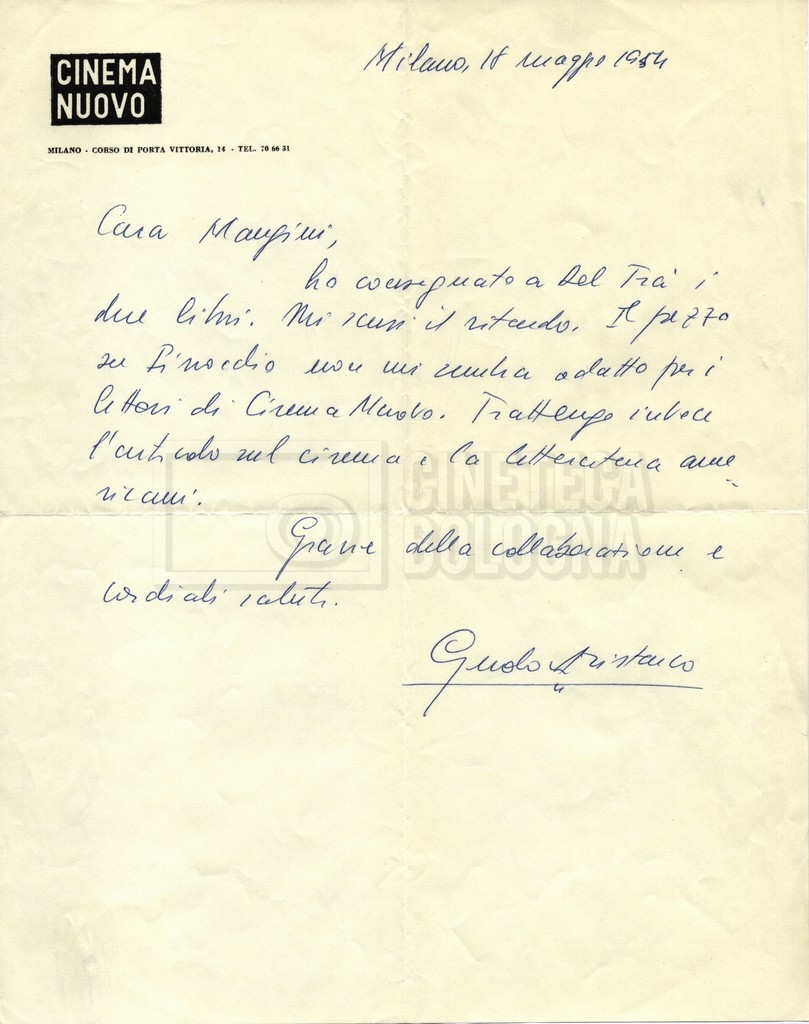 Milano, 18 maggio 1954
CINEMA
NUOVO
MILANO - CORSO DI PORTA VITTORIA, 14 - TEL. 70 66 31
Cara Mangini,
ho consegnato a Del Frà i
due libri. Mi scusi il ritardo. Il pezzo
su Pinocchio non mi sembra adatto per i
lettori di Cinema Nuovo. Trattengo invece
l'articolo sul cinema e la letteratura ame
ricani.
Grazie della collaborazione e
cordiali saluti.
Guido Aristarco
CINETECA
BOLOGNA